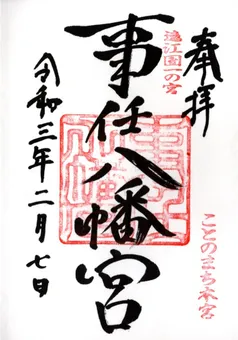 奉拝
遠江国一の宮
ことのまち本宮
事任八幡宮
令和三年二月七日